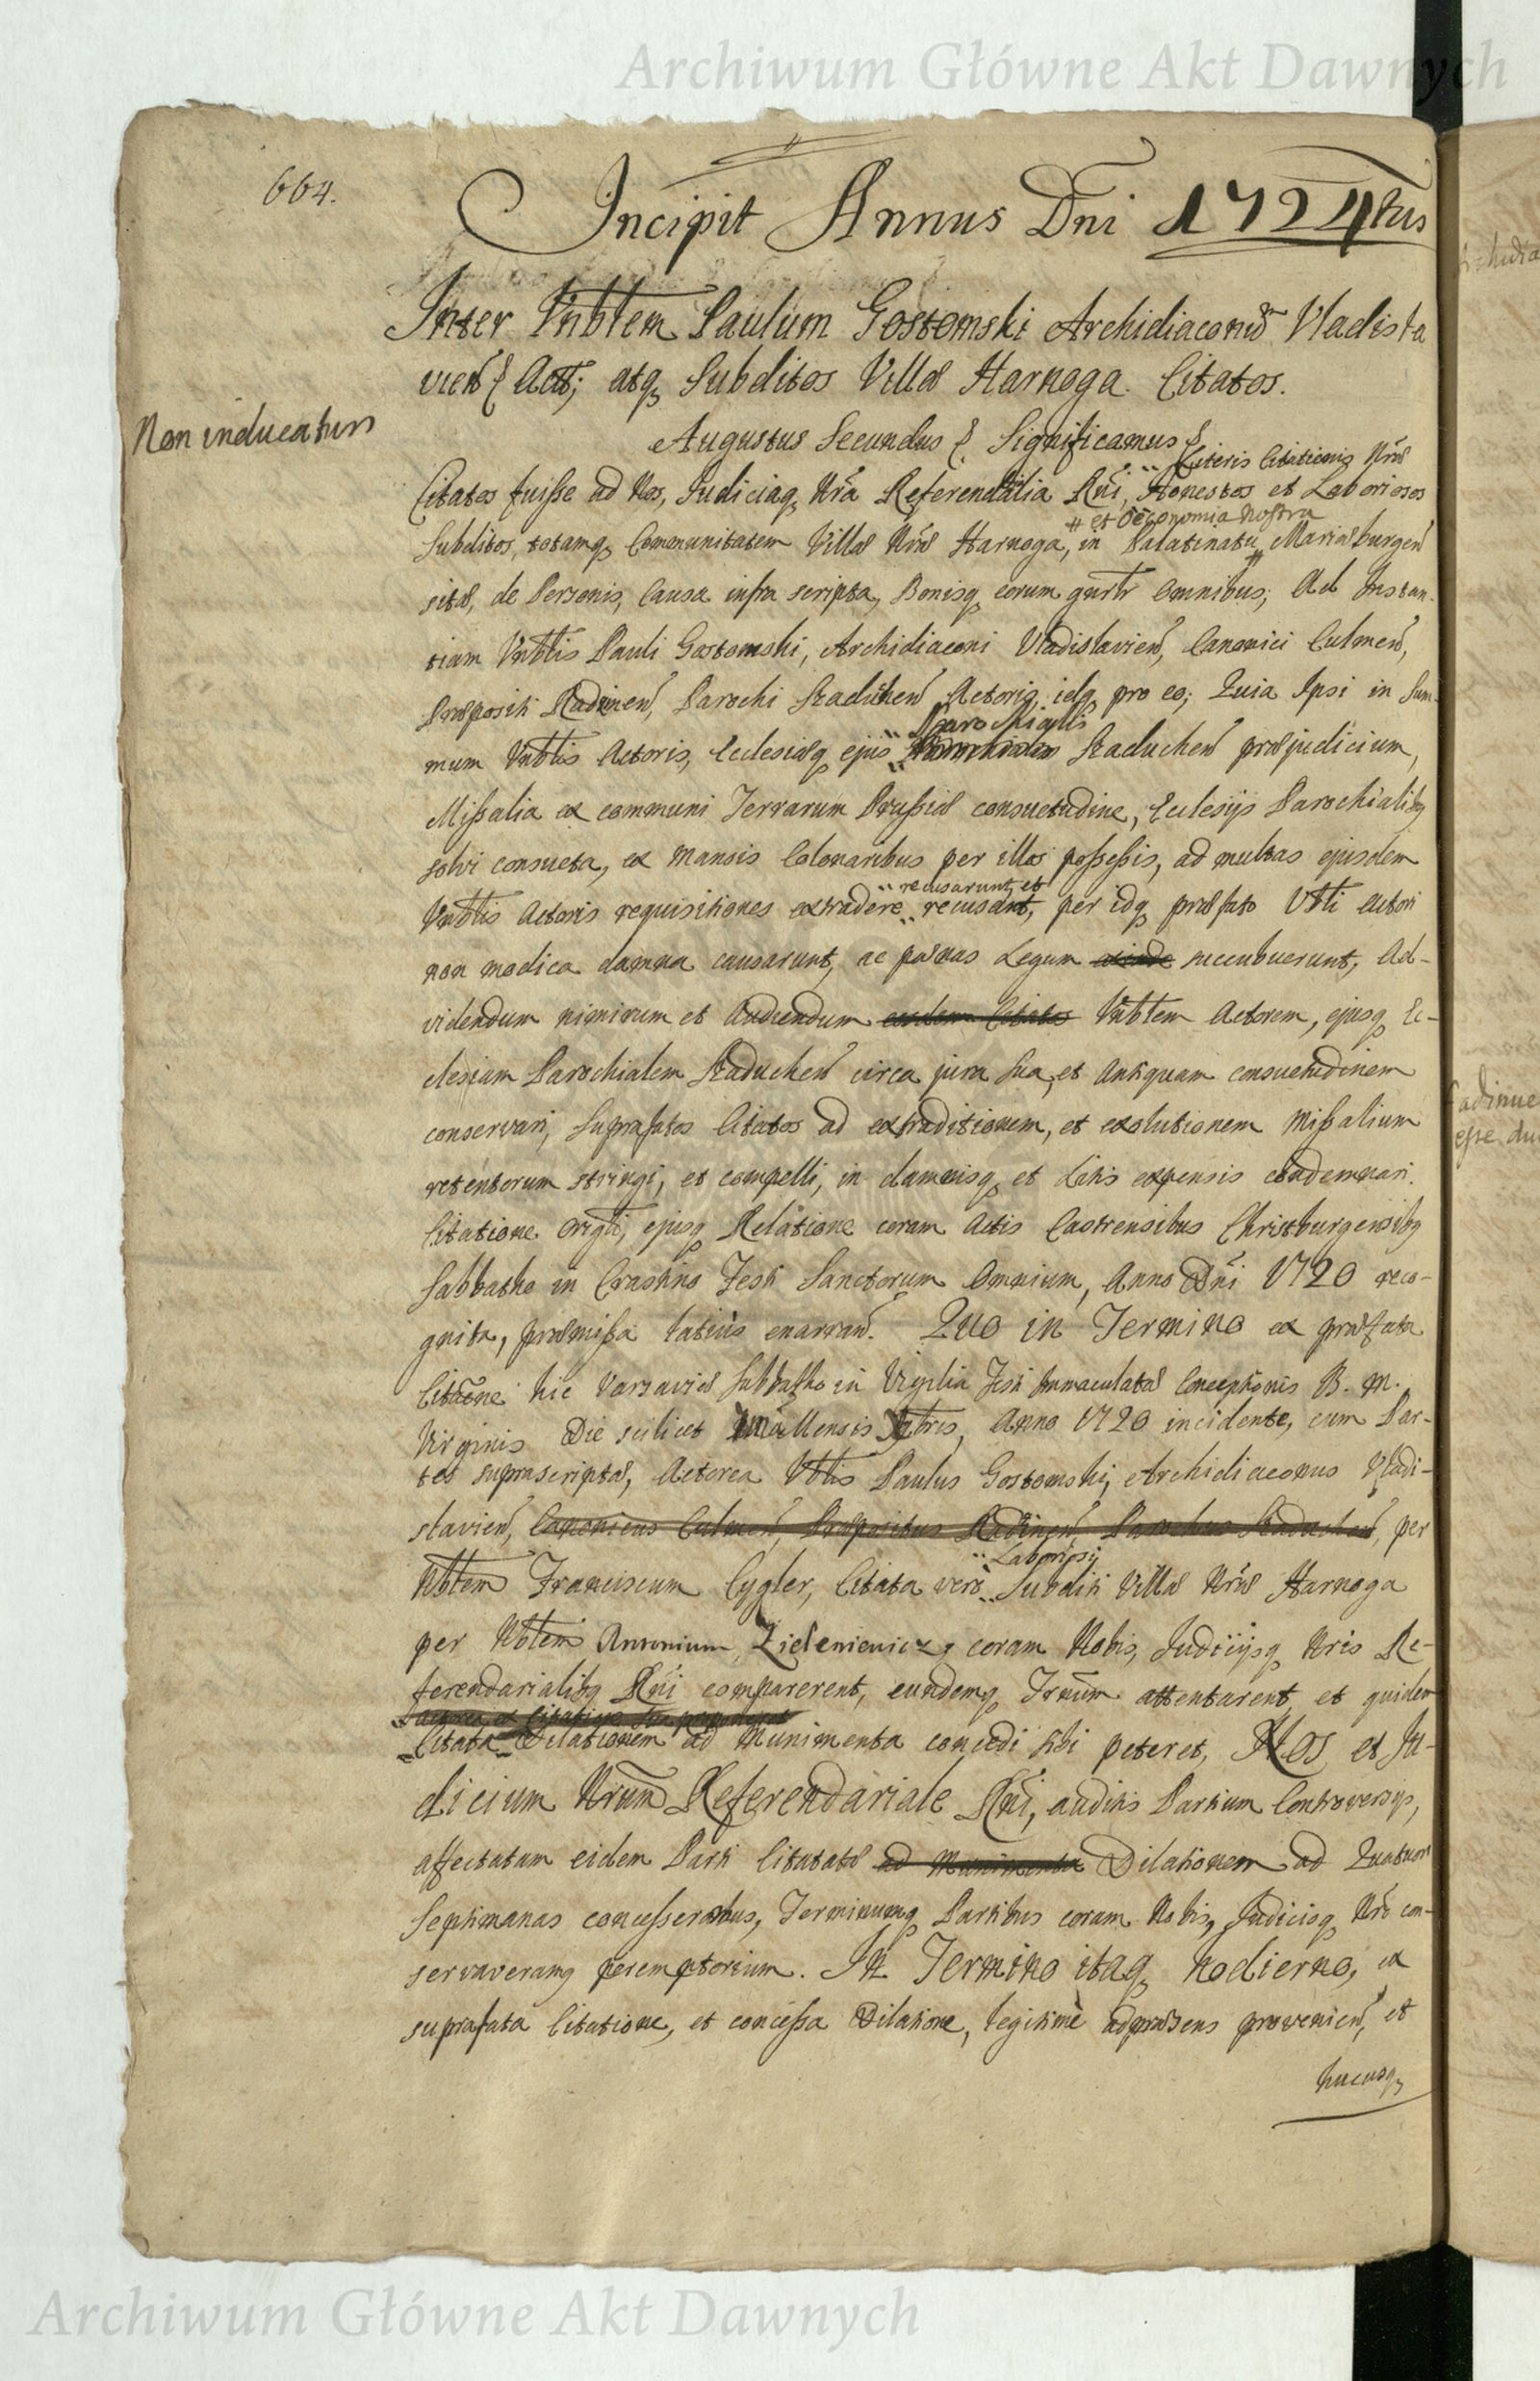 Archiwum Główne Akt Dawnych
664.
Incipit Annus Dni 1724tus
Inter Vnbtem Paulum Gostomski Archidiaconū Vladisla
vien ξ Act; atq Subditos Villæ Harnoga Citatos.
Non inducatur
Augustus Secundus ξ. Significamus ξ
Literis Citationis Nræ
Citatos fuisse ad Nos, Judiciaq Nrã Referendalia Rni, Honestos et Laboriosos
# et Oeconomia Nostra
Subditos, totamq Communitatem Villæ Nræ Harnoga, in Palatinatu Mariæburgen
sitæ, de Personis, Causa infra scripta, Bonisq eorum gnrlr omnibus; Ad Instan-
tiam Vnbtis Pauli Gostomski, Archidiaconi Vladislavien, Canonici Culmen,
Præpositi Radzinen, Parochi Straduchen Actoris, idq pro eo; Quia Ipsi in Sum-
Parochialis
mum Vnbtis Actoris, Ecclesiæq ejus Straduchen præjudicium,
Missalia ex communi Terrarum Prussiæ consuetudine, Ecclesijs Parochialibq
solvi consueta, ex Mansis Colonaribus per illos possessis, ad multas ejusdem
recusarunt, et
Vnbtis Actoris requisitiones extradere recusant, per idq præfato Vbti Actori
non modica damna causarunt, ac pœnas Legum succubuerunt, Ad-
videndum nimirum et Audiendum eosdem Citatos Vnbtem Actorem, ejusq Ec-
clesiam Parochialem Straduchen circa jura sua, et Antiquam consuetudinem
conservari, Suprafatos Citatos ad extraditionem, et exolutionem Missalium
retentorum stringi, et compelli, in damnisq et Litis expensis condemnari.
Citatione origli, ejusq Relatione coram Actis Castrensibus Christburgensibq
Sabbatho in Crastino Festi Sanctorum Omnium, Anno Dni 1720 reco-
gnita, præmissa latius enarran. Quo in Termino ex præfata
Citãone hic Varsaviæ Sabbatho in Vigilia Festi Immaculatæ Conceptionis B. M.
Virginis Die scilicet Mensis Xbris, Anno 1720 incidente, cum Par-
tes suprascriptæ, Actorea Vbtis Paulus Gostomski, Archidiaconus Vladi-
slavien, Canonicus Culmen, Præpositus Radzinen, Parochus Straduchen, per
Laboriosi
Nbtem Franciscum Cygler, Citata verò Subditi Villæ Nræ Harnoga
per Nbtem Antonium Zieleniewicz, coram Nobis, Judicijsq Nris Re-
ferendarialibq Rni comparerent, eundemq Trnum attentarent, et quidem
Citata Dilationem ad Munimenta concedi sibi peteret, Nos et Ju-
dicium Nrum Referendariale Rni, auditis Partium Controversijs,
affectatam eidem Parti Citatatæ ad Munimenta Dilationem ad Quatuor
Septimanas concesseramus, Terminumq Partibus coram Nobis, Judicioq Nro con-
servaveramq peremptorium. In Termino itaq hodierno, ex
suprafata Citatione, et concessa Dilatione, legitimè adpræsens provenien, et
hucusq
Archiwum Główne Akt Dawnych